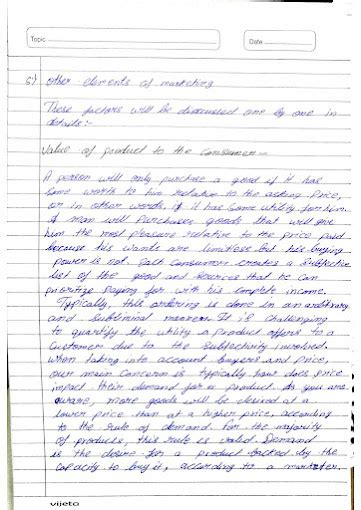 Topic
Date
5) other elements of marketing
These factors will be discussed one by one in
details:-
Value of product to the consumer—
A person will only purchase a good if it has
some worth to him relative to the asking price,
or in other words, if it has some utility for him.
A man will purchases goods that will give
him the most pleasure relative to the price paid
because his wants are limitless but his buying
power is not. Each consumer creates a subjective
list of the good and services that he can
prioritize paying for with his income.
Typically, this ordering is done in an arbitrary
and subliminal manner. It is challenging
to quantify the utility a product offers to a
customer due to the subjectivity involved.
When taking into account buyers and price,
our main concern is typically how does price
impact their demand for a product. As you are
aware, more goods will be desired at a
lower price than at a higher price, according
to the rule of demand. For the majority
of products, this rule is valid. Demand
is the desire for a product backed by the
capacity to buy it, according to a marketer.
vijeta